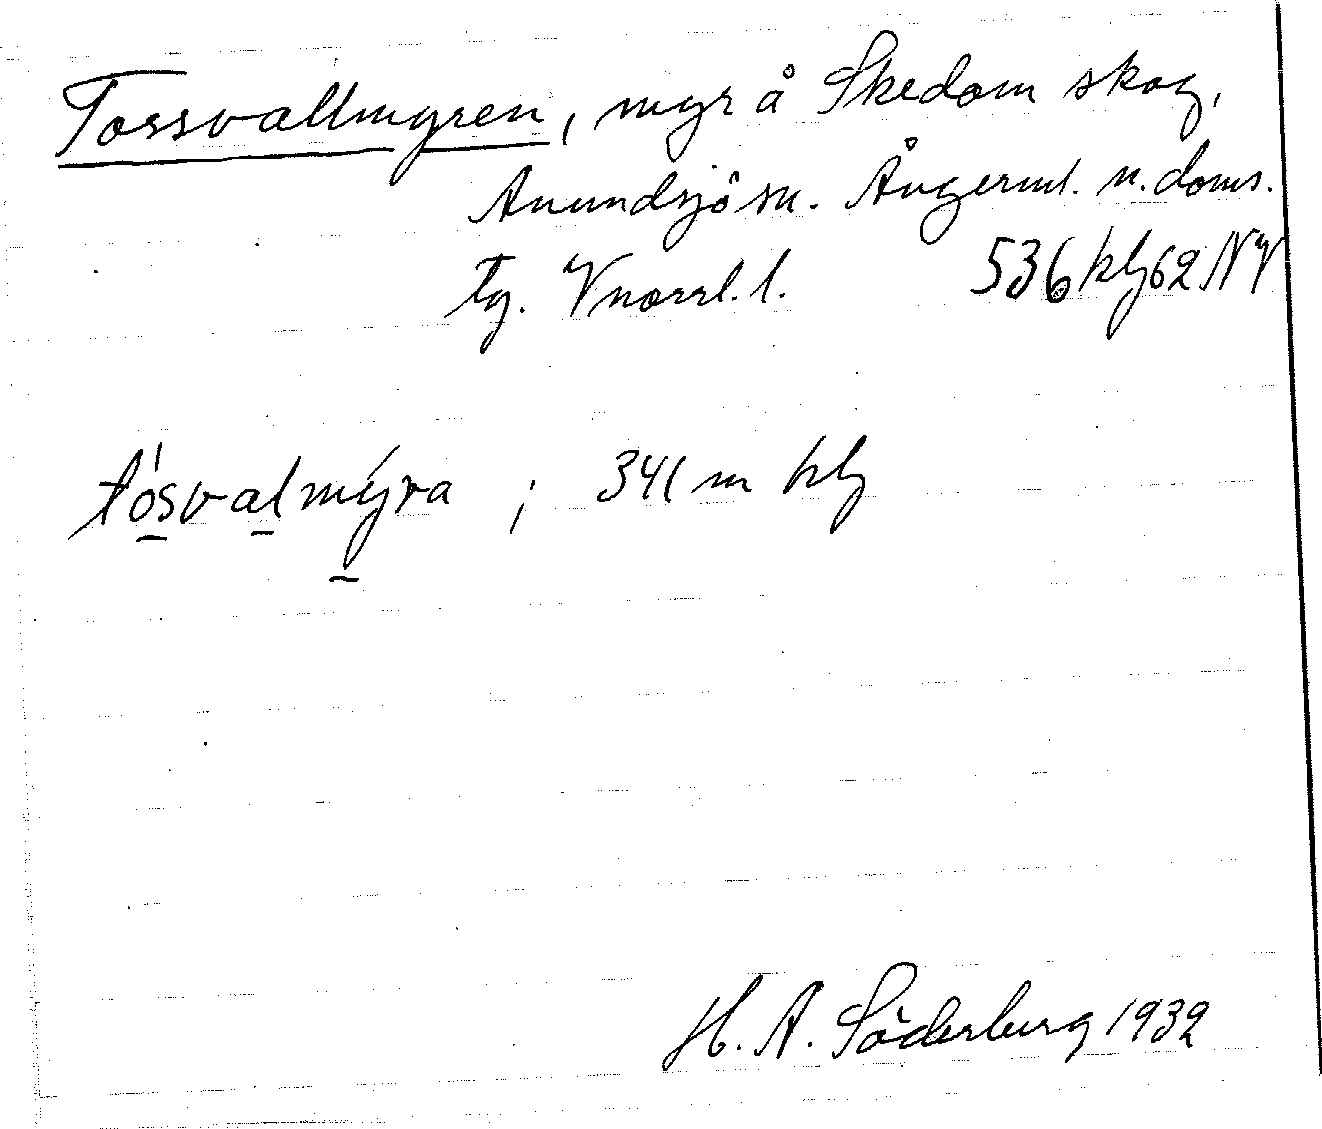 Torsvallmyren, myr å Skedom skog,
Anundsjö sn. Ångerml. n. doms.
tg. Vnorrl. l. 536 klg 62 NV
tósvalmýra ; 341 m klg
H. A. Söderberg 1932